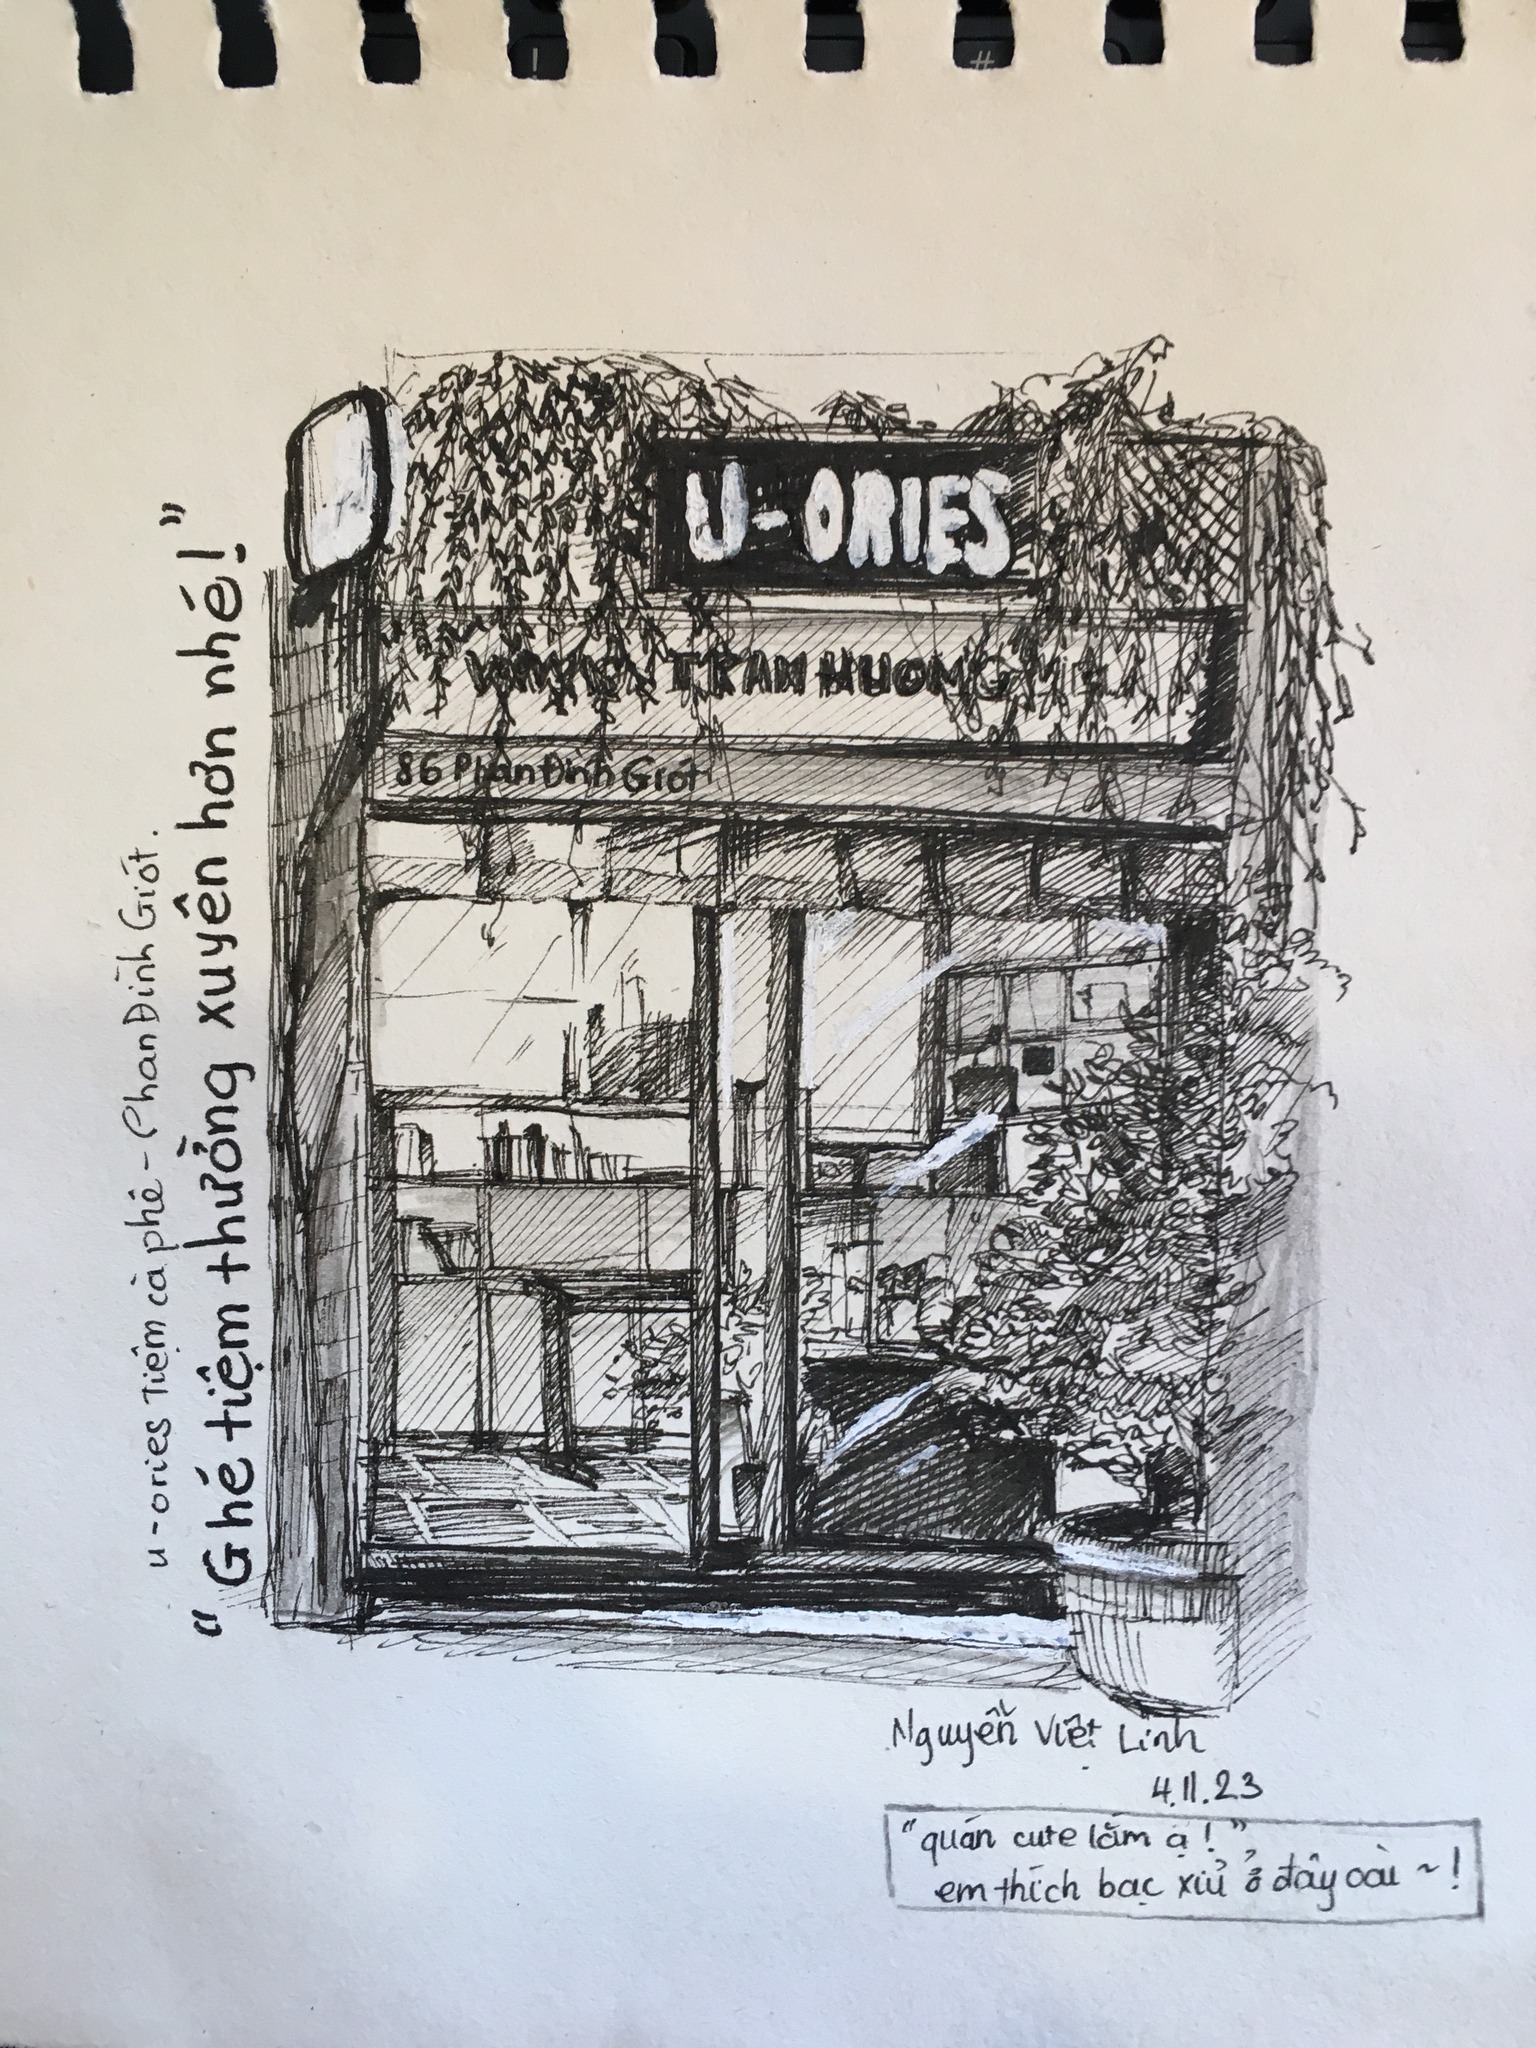 U-ORIES
TRANHUONG
86 Phan Đình Giót
u-ories Tiệm cà phê - Phan Đình Giót.
"Ghé tiệm thường xuyên hơn nhé!"
Nguyễn Việt Linh
4.11.23
"quán cute lắm ạ!"
em thích bạc xỉu ở đây oài ~!